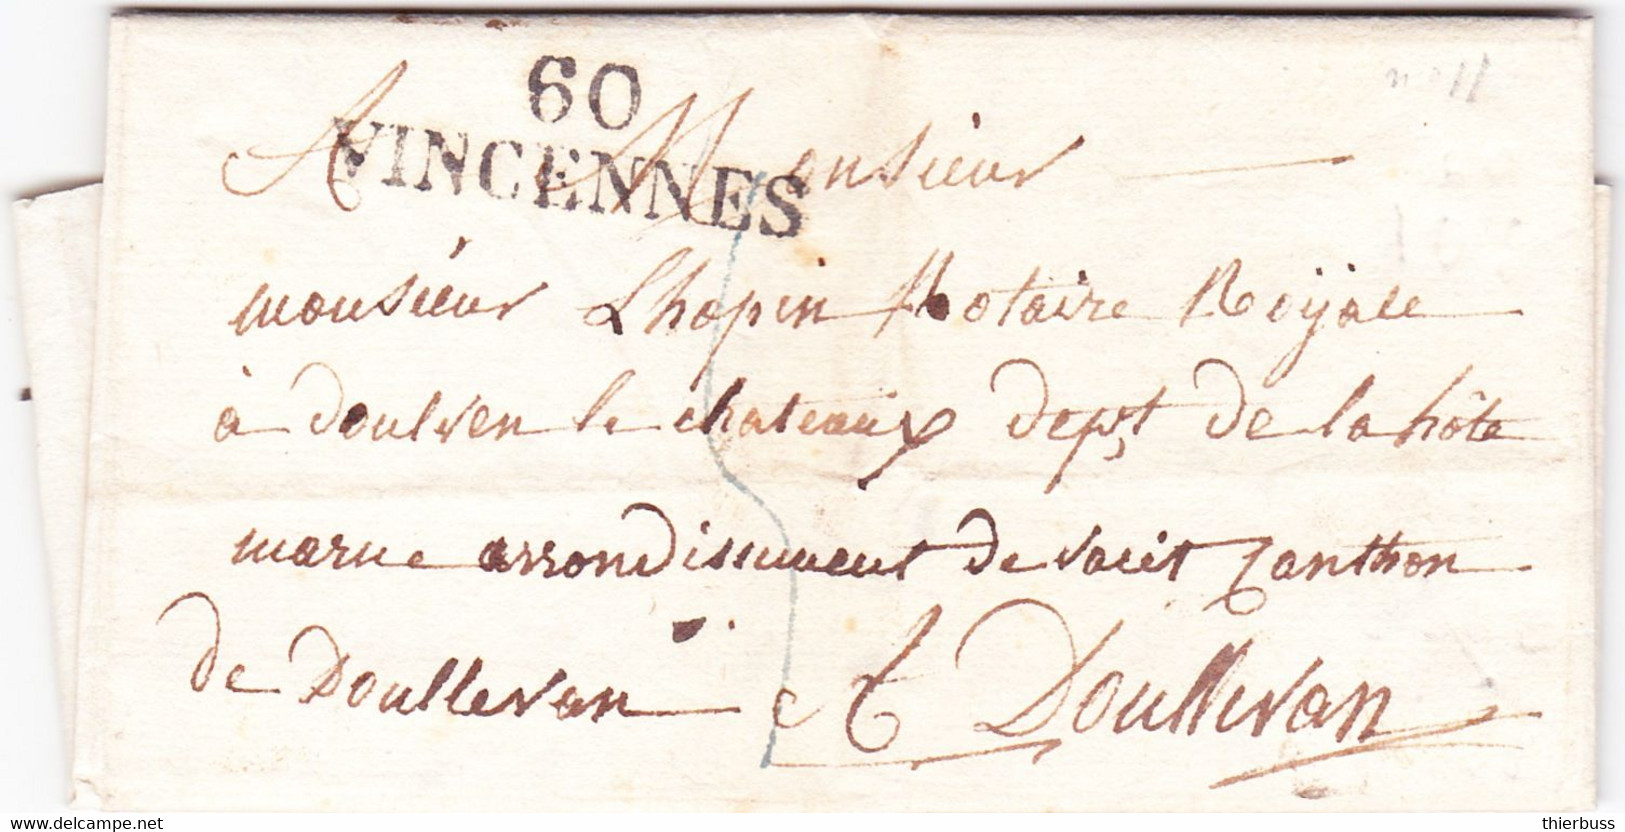 60
VINCENNES
A Monsieur
monsieur Lhopin Notaire Royale
à doulven le chateaux dept de la hôte
marne arrondissement de vacit Canthon
de Doullevan
A Doullevan
n° 11
www.delcampe.net
thierbuss